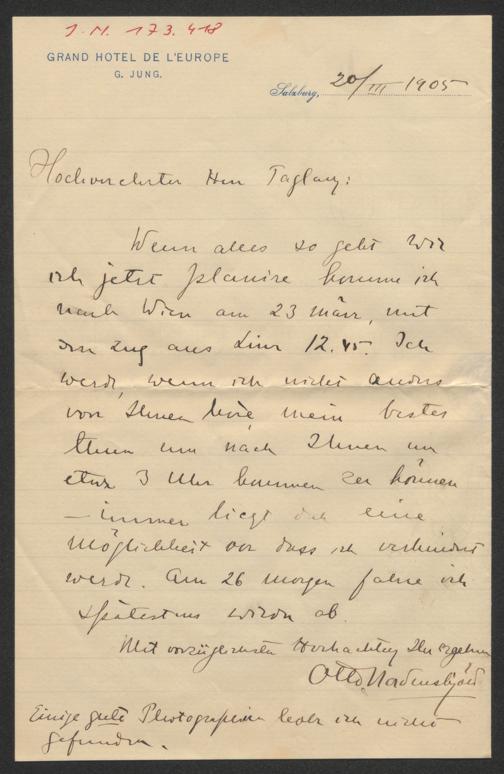 I.N. 173.418
GRAND HOTEL DE L'EUROPE
G. JUNG.
Salzburg, 20/III 1905
Hochverehrter Herr Taglang:
Wenn alles so geht wie
ich jetzt planire komme ich
nach Wien am 23 märz, mit
dem Zug aus Linz 12.45. Ich
werde, wenn ich nicht anders
von Ihnen höre, mein bestes
thun um nach Ihnen um
etwa 3 Uhr kommen zu können
– immer liegt doch eine
möglichkeit vor dass ich verhindert
werde. Am 26 morgen fahre ich
spätestens wieder ab.
Mit vorzüglichsten Hochachtung Ihr ergebener
Otto Nordenskjöld
Einige gute Photographien habe ich nicht
gefunden.